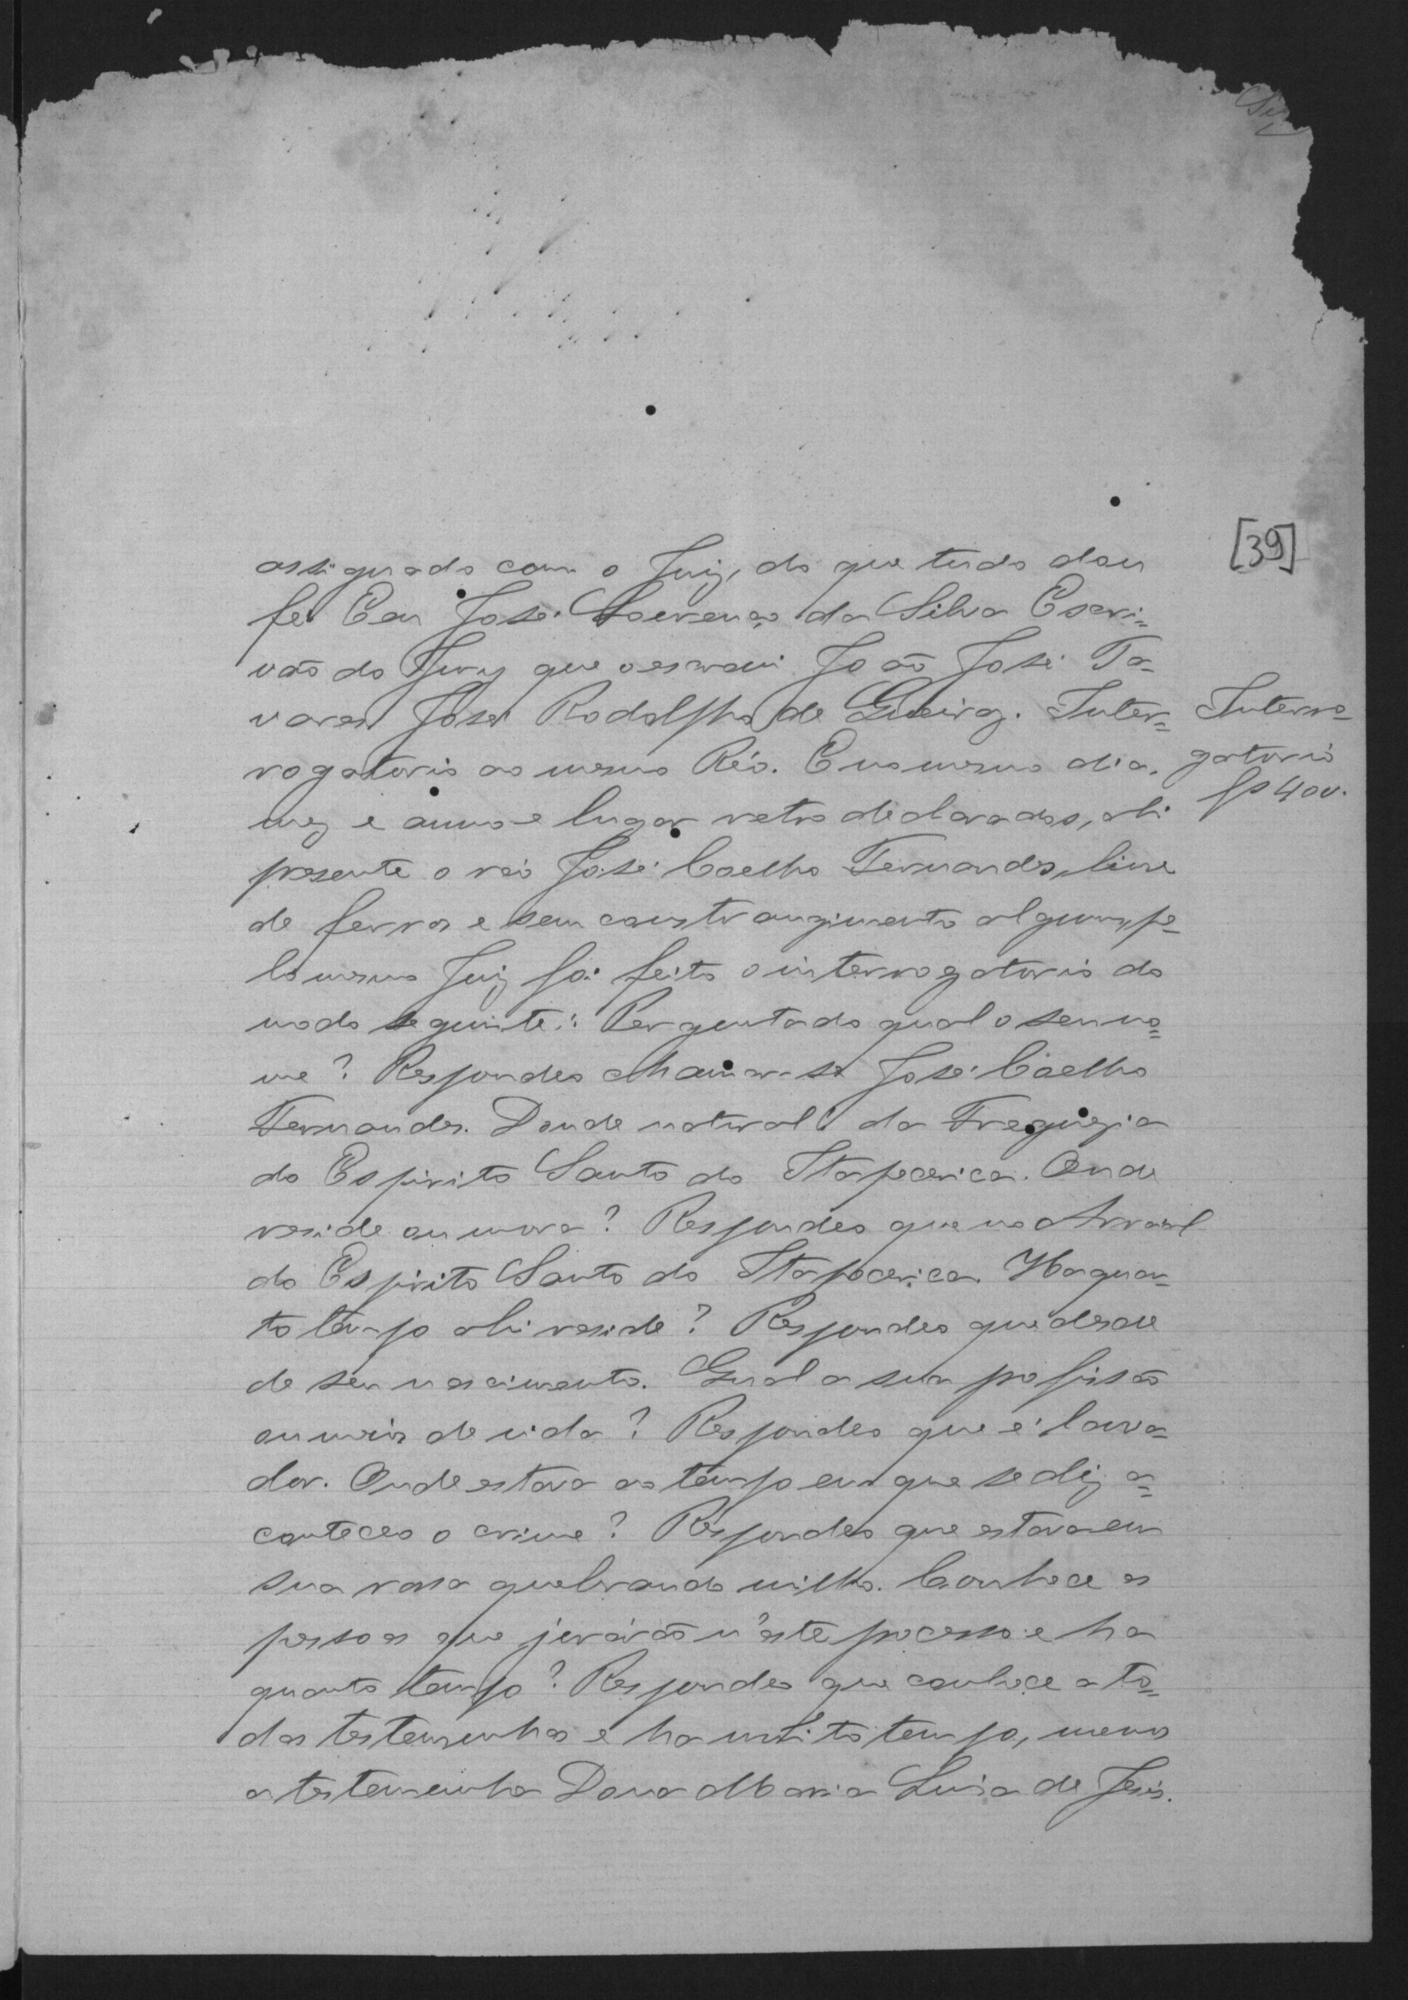 [39]
assignado com o Juiz, do que tudo dou
fé. Eu José Lourenço da Silva Escri=
vão do Jury que o escrevi. João José Ta=
vares José Rodolpho de Queiroz. Inter=
Interro=
gatorio
400.
rogatorio ao mesmo Réo. E no mesmo dia,
mez e anno e lugar retro declarados, ahi
presente o réo José Coelho Fernandes, livre
de ferros e sem constrangimento algum, pe=
lo mesmo Juiz foi feito o interrogatorio do
modo seguinte: Perguntado qual o seu no=
me? Respondeo chamar-se José Coelho
Fernandes. Donde natural? da Freguezia
do Espirito Santo do Itapecerica. Onde
reside ou mora? Respondeo que no Arraial
do Espirito Santo do Itapecerica. Ha quan=
to tempo ahi reside? Respondeo que desde
de seu nascimento. Qual a sua profissão
ou meio de vida? Respondeo que é lavra=
dor. Onde estava ao tempo em que se diz a=
conteceo o crime? Respondeo que estava em
sua rossa quebrando milho. Conhece as
pessoas que jurárão n'este processo e ha
quanto tempo? Respondeo que conhece a to=
das testemunhas e ha muito tempo, menos
a testemunha Dona Maria Luisa de Jesus.